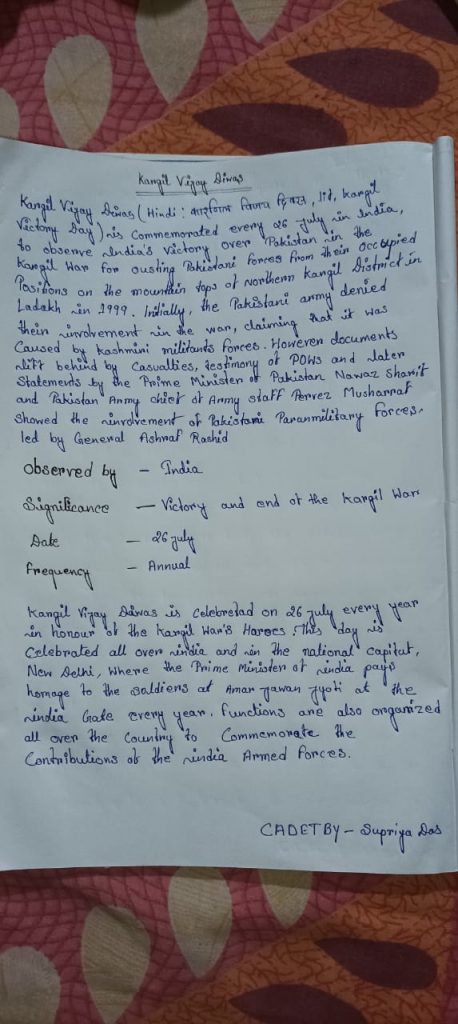 Kangil Vijay Diwas
Kangil Vijay Diwas (Hindi: कारगिल विजय दिवस, lit, kangil
Victory Day) is Commemorated every 26 july in India,
to observe India's Victory over Pakistan in the
Kangil War for ousting Pakistani Forces from their Occupied
Positions on the mountain tops of northern Kangil District in
Ladakh in 1999. Initially, the Pakistani army denied
their involvement in the war, claiming that it was
Caused by kashmini militants Forces. However documents
left behind by Casualties, testimony of POWs and later
Statements by the Prime Minister of Pakistan Nawaz Sharif
and Pakistan Army chief of Army staff Pervez Musharraf
Showed the involvement of Pakistani Paranmilitary Forces,
led by General Ashraf Rashid
Observed by - India
Significance - Victory and end of the kangil War
Date - 26 july
Frequency - Annual
Kangil Vijay Diwas is Celebretad on 26 july every year
in honour of the Kangil War's Haroes. This day is
Celebrated all over india and in the national capitat,
New Delhi, where the Prime Minister of india pays
homage to the Soldiens at Aman jawan jyoti at the
india Gate every year. Functions are also organized
all over the Country to Commemorate the
Contributions of the india Armed Forces.
CADET BY - Supriya Das